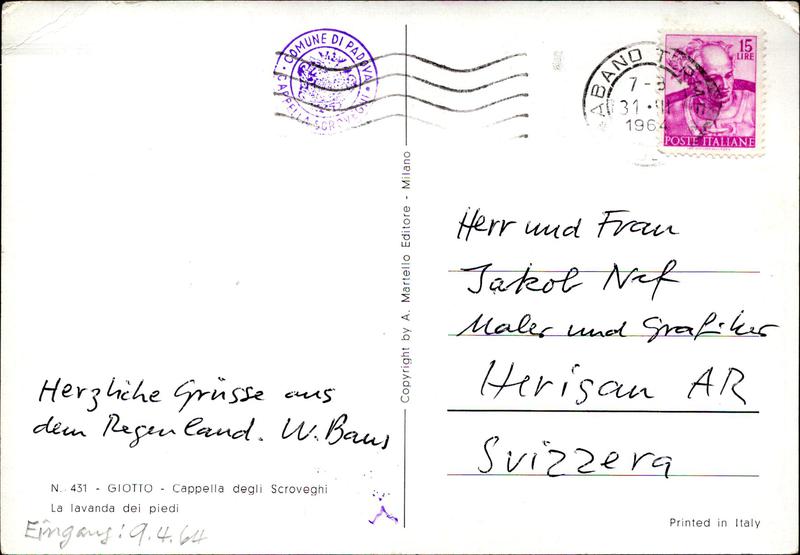 COMUNE DI PADOVA
CAPPELLA SCROVEGNI
ABANO TERME
7-8
31 · III
1964
15
LIRE
POSTE ITALIANE
Herr und Frau
Jakob Nef
Maler und Grafiker
Herisau AR
Svizzera
Copyright by A. Martello Editore - Milano
Herzliche Grüsse aus
dem Regenland. W. Baus
N. 431 - GIOTTO - Cappella degli Scroveghi
La lavanda dei piedi
Eingang: 9.4.64
Printed in Italy